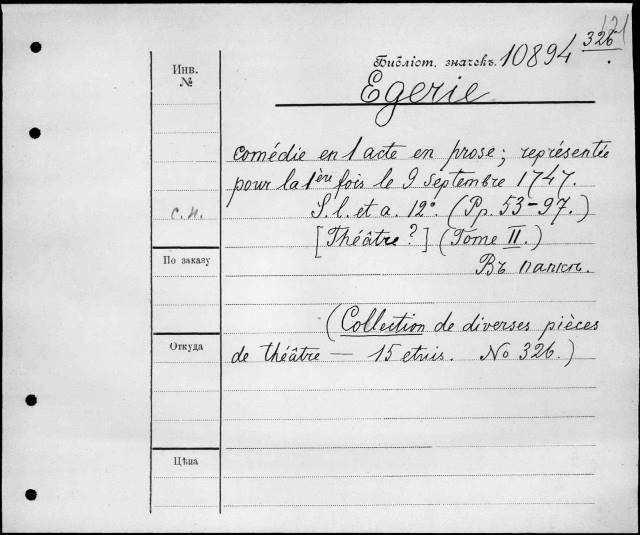 121
Инв.
№
Библіот. значекъ. 10894 326.
Egerie
comédie en 1 acte en prose; représentée
pour la 1ère fois le 9 septembre 1747.
с.п.
S. l. et a. 12°. (Pp. 53-97.)
[Théâtre?] (Tome II.)
По заказу
Въ папкѣ.
(Collection de diverses pièces
Откуда
de théâtre — 15 etuis. No 326.)
Цѣна